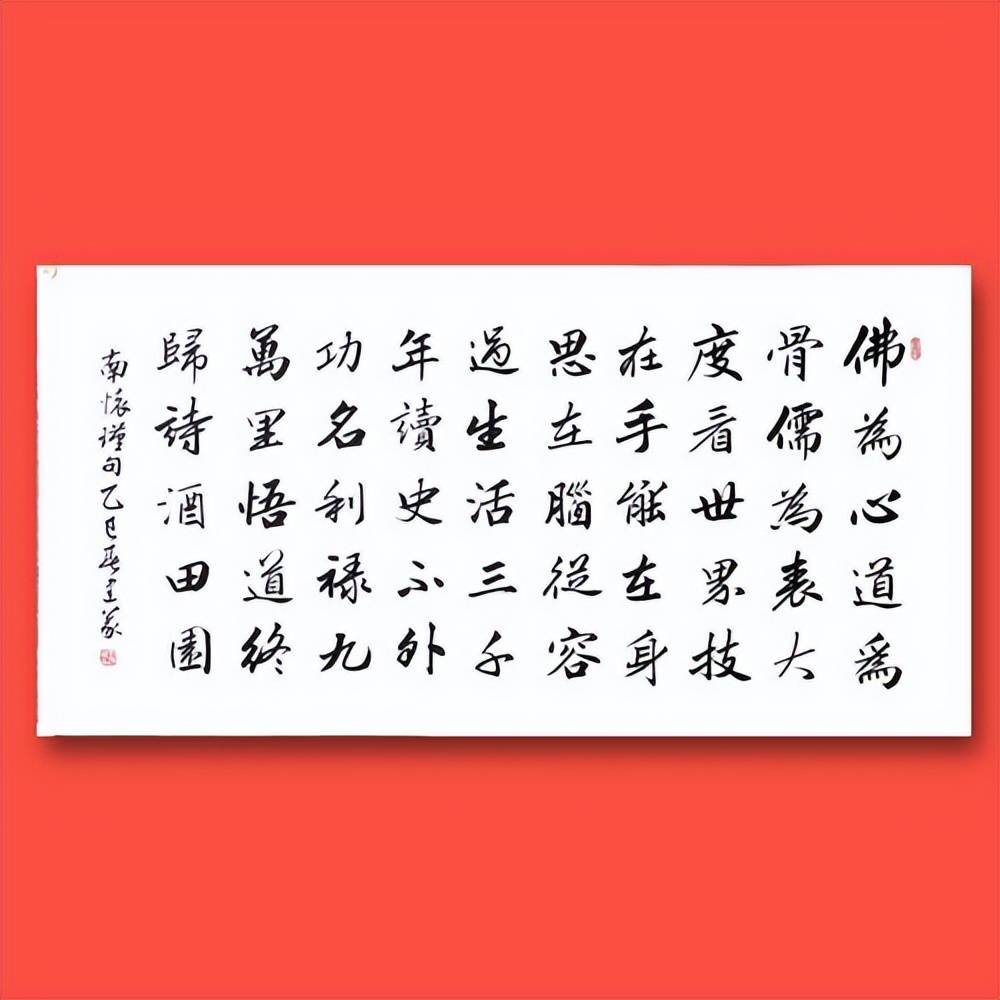 佛為心道為
骨儒為表大
度看世界技
在手能在身
思在腦從容
過生活三千
年讀史不外
功名利祿九
萬里悟道終
歸詩酒田園
南懷瑾句乙巳春建義